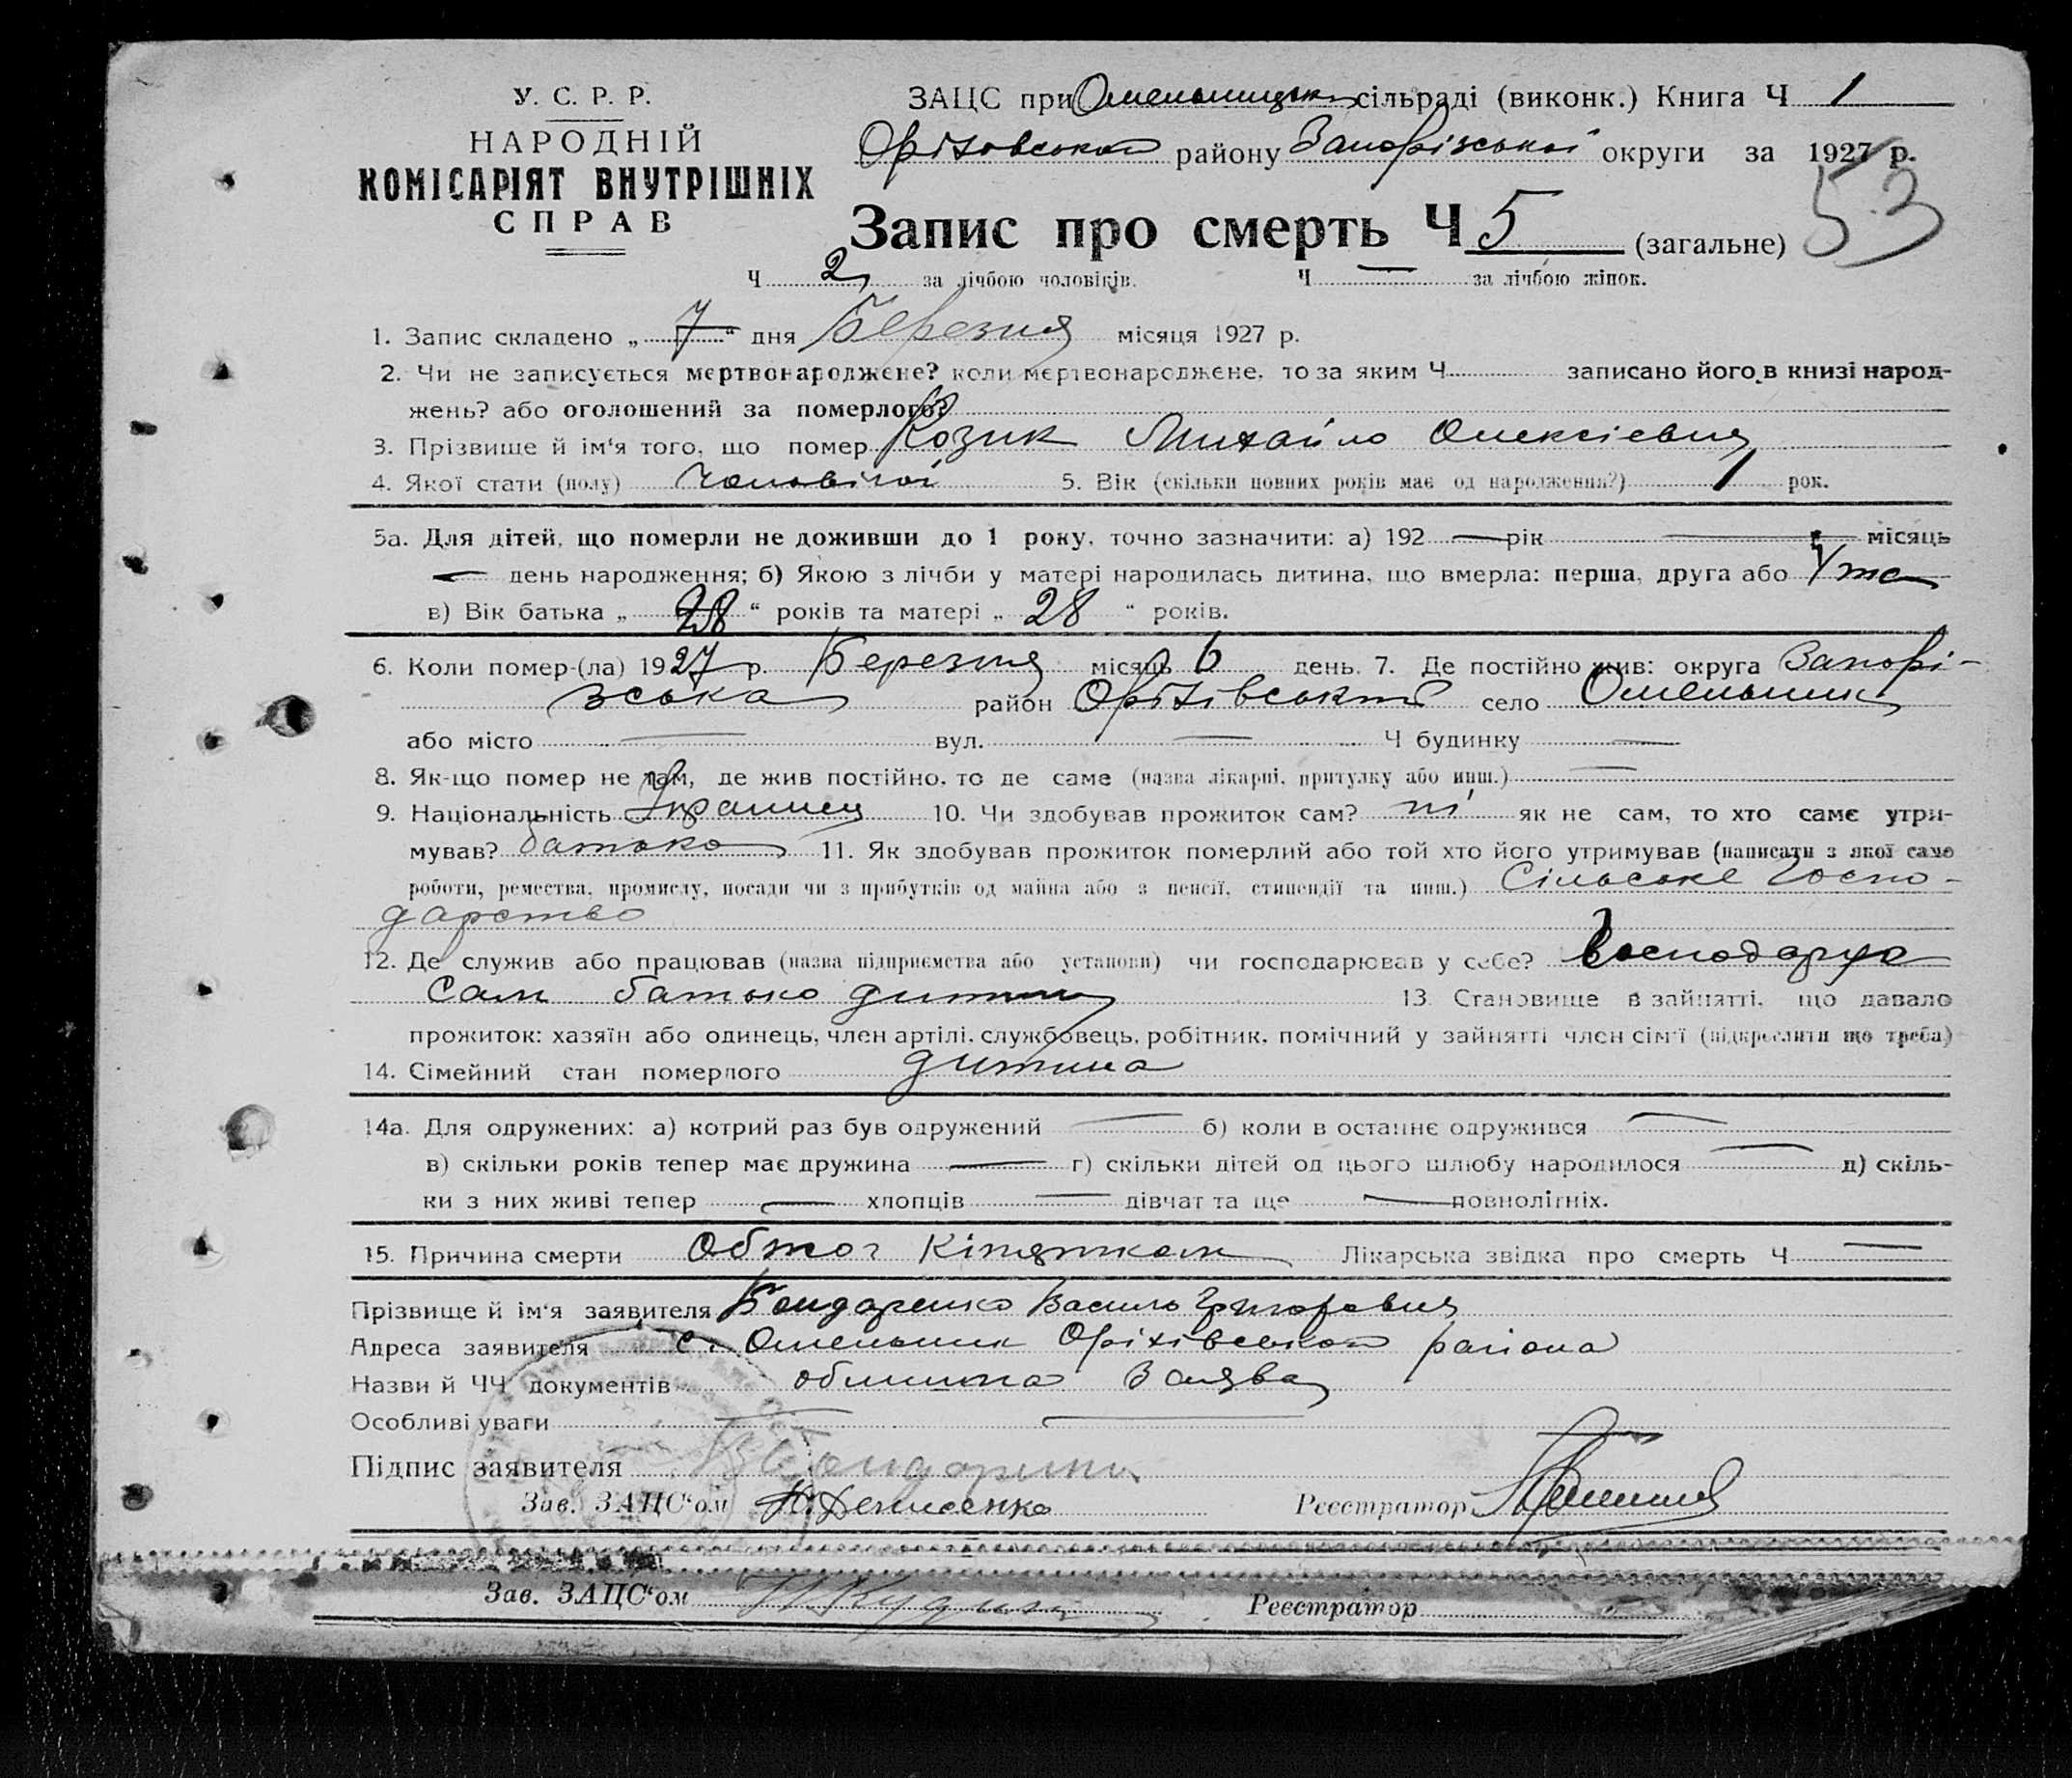 У. С. Р. Р.
НАРОДНІЙ
КОМІСАРІЯТ ВНУТРІШНІХ
СПРАВ
ЗАЦС при Омельницьк сільраді (виконк.) Книга Ч 1
Оріховської району Запорізької округи за 1927 р.
53
Запис про смерть Ч 5 (загальне)
Ч 2 за лічбою чоловіків. Ч — за лічбою жінок.
1. Запис складено „ 7 “ дня Березня місяця 1927 р.
2. Чи не записується мертвонароджене? коли мертвонароджене, то за яким Ч записано його в книзі народ-
жень? або оголошений за померлого?
3. Прізвище й ім‘я того, що помер Козик Михайло Олексієвич
4. Якої стати (полу) Чоловічої 5. Вік (скільки повних років має од народження?) 1 рок.
5а. Для дітей, що померли не доживши до 1 року, точно зазначити: а) 192 — рік — місяць
— день народження; б) Якою з лічби у матері народилась дитина, що вмерла: перша, друга або
в) Вік батька „ 28 “ років та матері „ 28 “ років.
6. Коли помер-(ла) 1927 р. Березня місяць 6 день. 7. Де постійно жив: округа Запорі-
зська район Оріхівський село Омельник
або місто — вул. — Ч будинку —
8. Як-що помер не там, де жив постійно, то де саме (назва лікарні, притулку або инш.) —
9. Національність Українец 10. Чи здобував прожиток сам? ні як не сам, то хто саме утри-
мував? батько 11. Як здобував прожиток померлий або той хто його утримував (написати з якої само
роботи, ремества, промислу, посади чи з прибутків од майна або з пенсії, стипендії та инш.) Сільське Госпо-
дарство
12. Де служив або працював (назва підприємства або установи) чи господарював у себе? Господарює
Сам батько дитини 13. Становище в зайнятті, що давало
прожиток: хазяїн або одинець, член артілі, службовець, робітник, помічний у зайнятті член сім‘ї (підкреслити що треба)
14. Сімейний стан померлого дитина
14а. Для одружених: а) котрий раз був одружений — б) коли в останнє одружився —
в) скільки років тепер має дружина — г) скільки дітей од цього шлюбу народилося — д) скіль-
ки з них живі тепер — хлопців — дівчат та ще — повнолітніх.
15. Причина смерти Обжог Кіпятком Лікарська звідка про смерть Ч —
Прізвище й ім‘я заявителя Бондаренко Василь Григорович
Адреса заявителя с. Омельник Оріхівської района
Назви й ЧЧ документів Заява
Особливі уваги — —
Підпис заявителя
Зав. ЗАЦС‘ом Денисенко Реєстратор
Зав. ЗАЦС‘ом Реєстратор